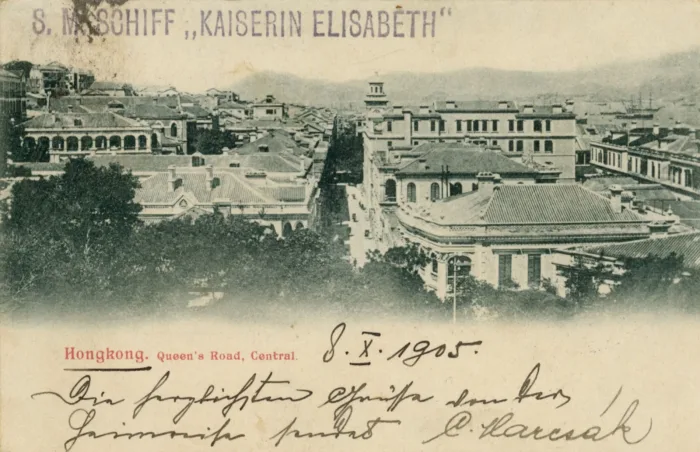 S. M. SCHIFF „KAISERIN ELISABETH“
Hongkong. Queen's Road, Central.
8. X. 1905.
Die herzlichsten Grüße von der
Heimreise sendet C. Harcsák